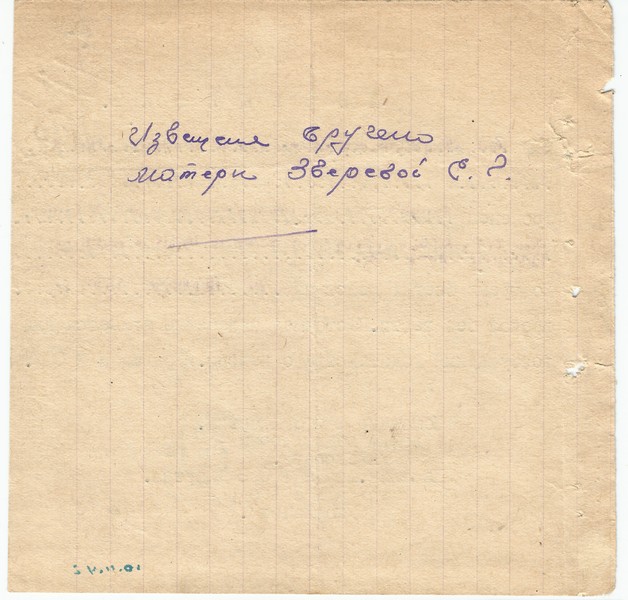 Извещения вручено
матери Зверевой Е. Г.